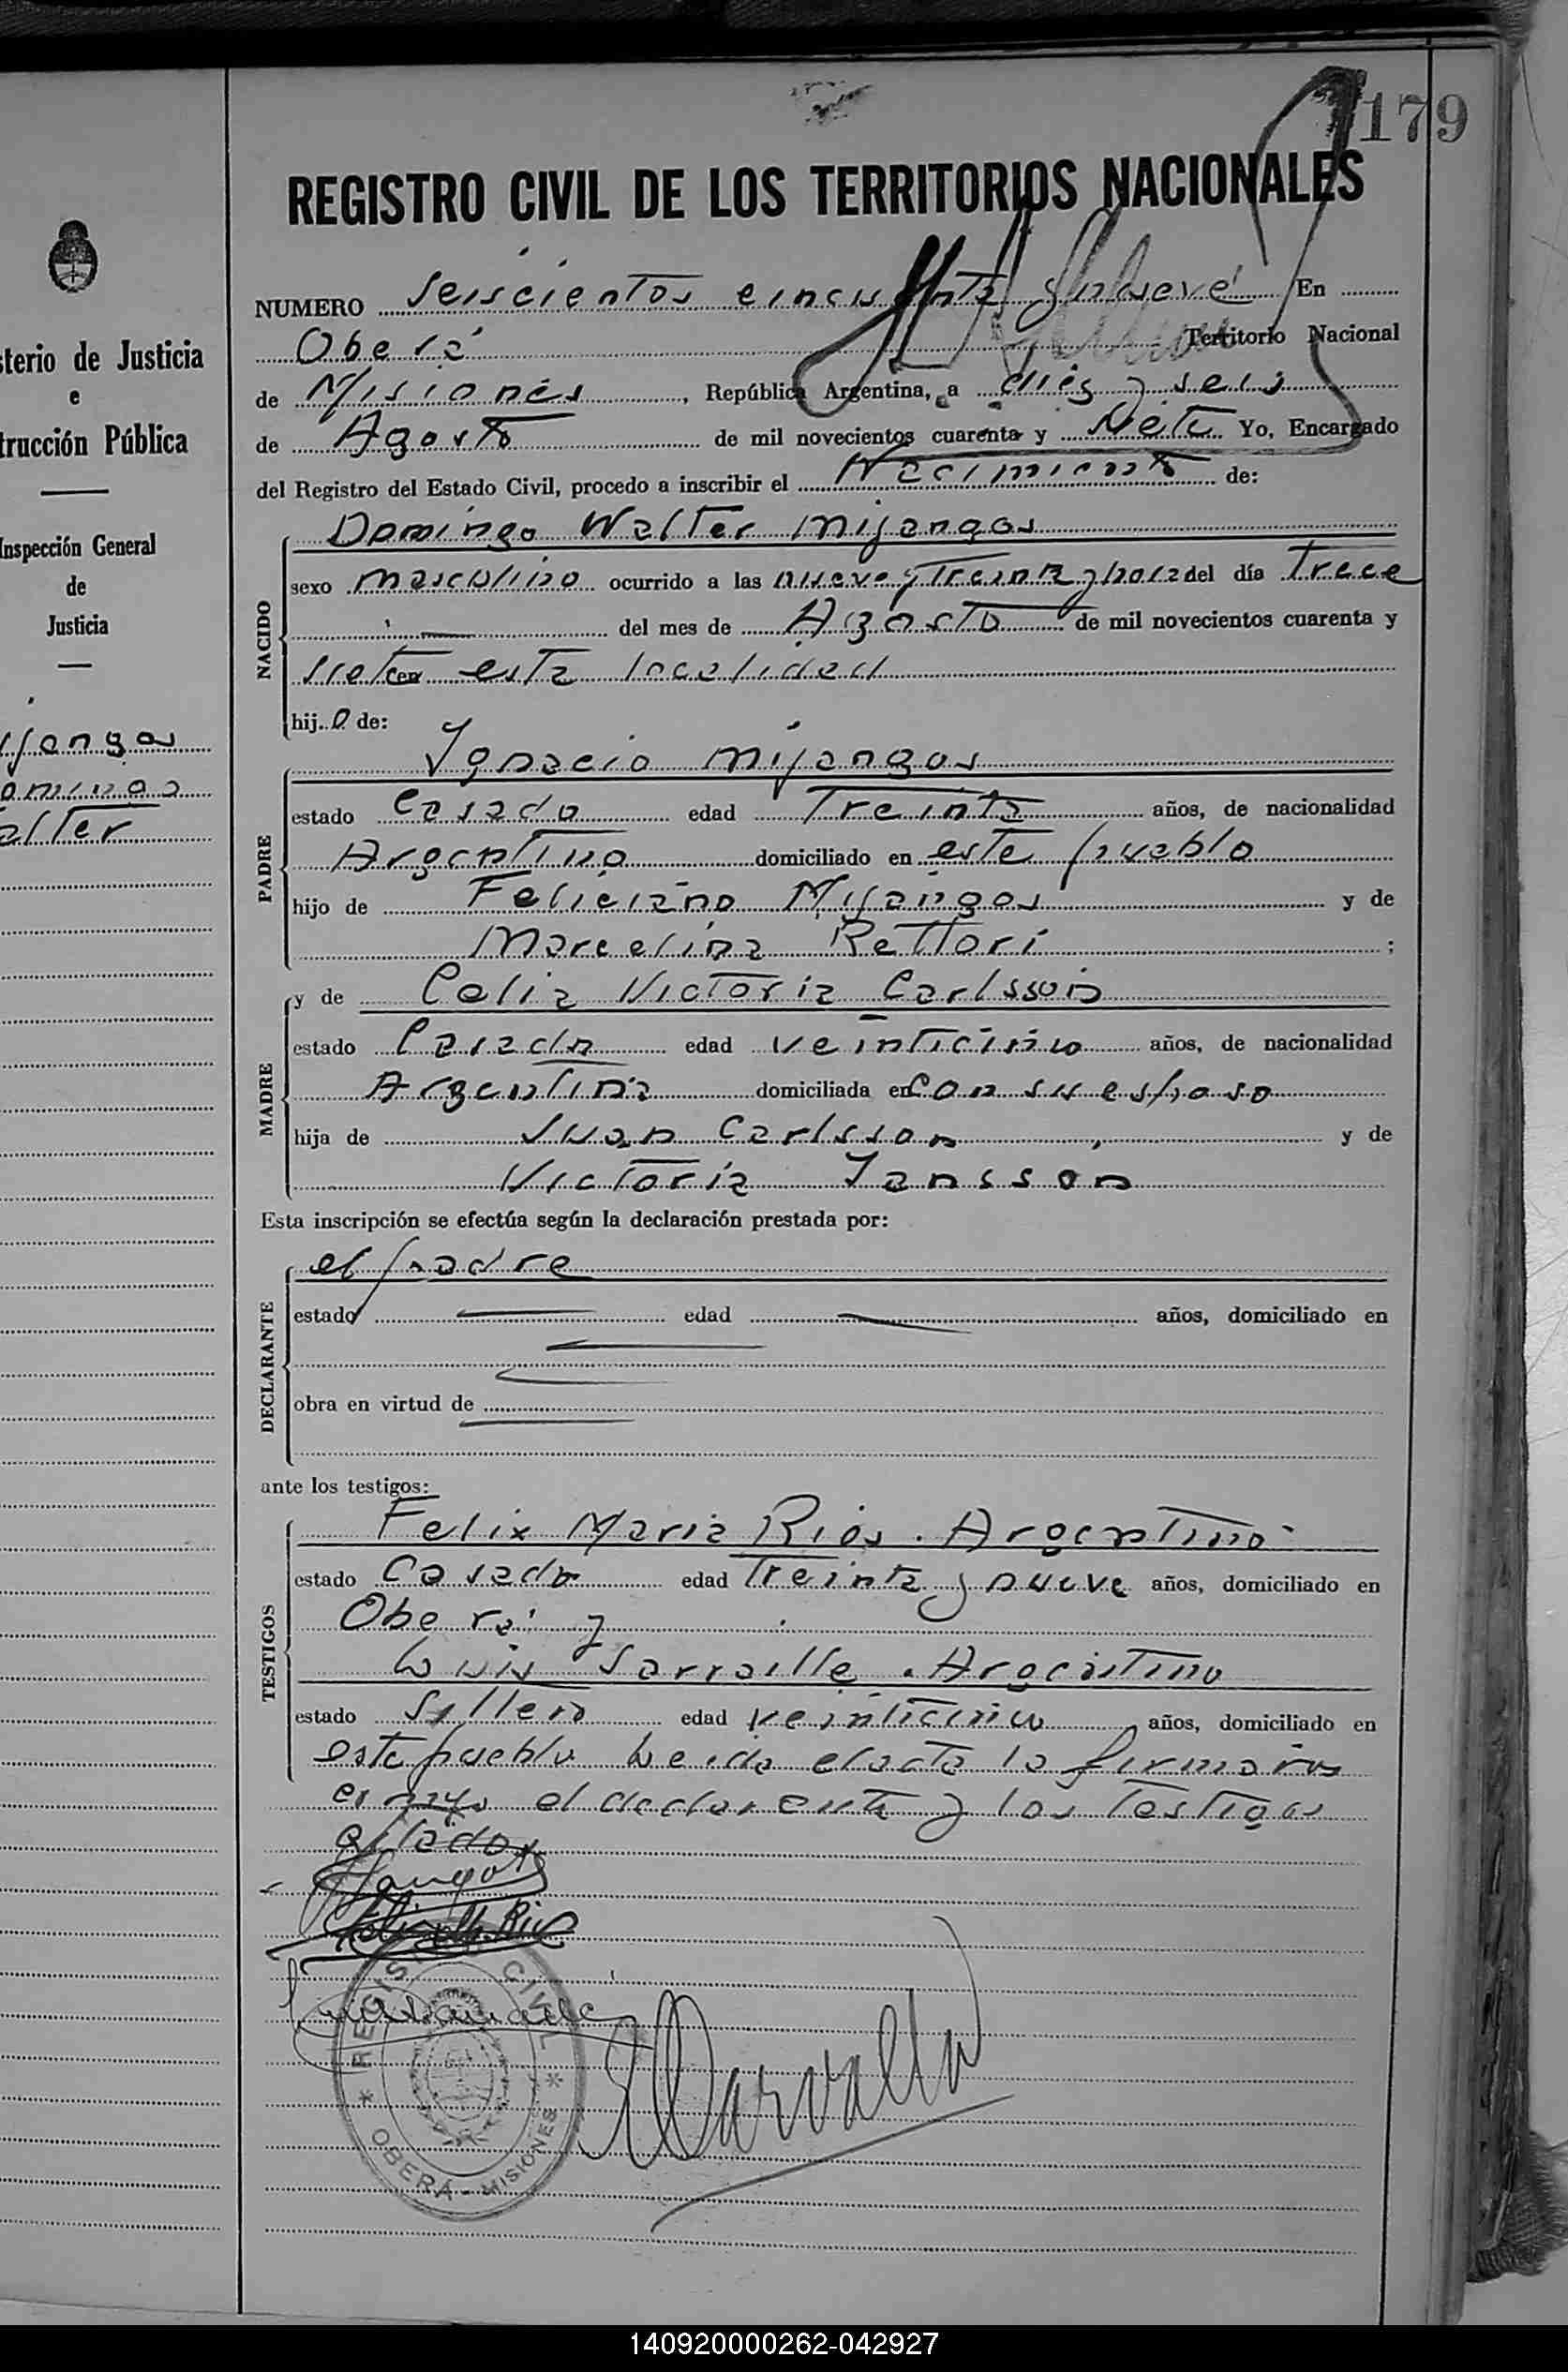 179
REGISTRO CIVIL DE LOS TERRITORIOS NACIONALES
sterio de Justicia
e
trucción Pública
Inspección General
de
Justicia
ijangos
omingo
alter
NUMERO seiscientos cincuenta y nueve En
Oberá Territorio Nacional
de Misiones, República Argentina, a diéz y seis
de Agosto de mil novecientos cuarenta y siete Yo, Encargado
del Registro del Estado Civil, procedo a inscribir el Nacimiento de:
NACIDO
Domingo Walter Mijangos
sexo masculino ocurrido a las nueve y treinta y hora del día Trece
del mes de Agosto de mil novecientos cuarenta y
siete en esta localidad
hijo de:
PADRE
Ygnacio Mijangos
estado Casado edad Treinta años, de nacionalidad
Argentino domiciliado en este pueblo
hijo de Feliciano Mijangos y de
Marcelina Rettori ;
MADRE
y de Celia Victoria Carlsson
estado Casada edad veinticinco años, de nacionalidad
Argentina domiciliada en Con su esposo
hija de Juan Carlsson y de
Victoria Jansson
Esta inscripción se efectúa según la declaración prestada por:
DECLARANTE
el padre
estado edad años, domiciliado en
obra en virtud de
ante los testigos:
TESTIGOS
Felix Maria Rios. Argentino
estado Casado edad Treinta y nueve años, domiciliado en
Oberá y
Luis Sarraille. Argentino
estado Soltero edad veinticinco años, domiciliado en
este pueblo Leida el acta la firmaron
conmigo el declarante y los Testigos
citados
Mijangos
Felix M. Rios
Luis Sarraille
REGISTRO CIVIL
* OBERÁ - MISIONES *
140920000262-042927